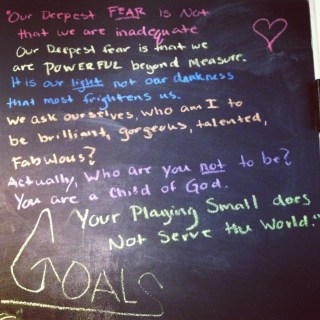 "Our Deepest FEAR is Not
that we are inadequate
Our Deepest fear is that we
are POWERFUL beyond Measure.
It is our light not our darkness
that most frightens us.
We ask ourselves, who am I to
be brilliant, gorgeous, talented,
Fabulous?
Actually, Who are you not to be?
You are a Child of God.
Your Playing Small does
Not Serve the World."
GOALS